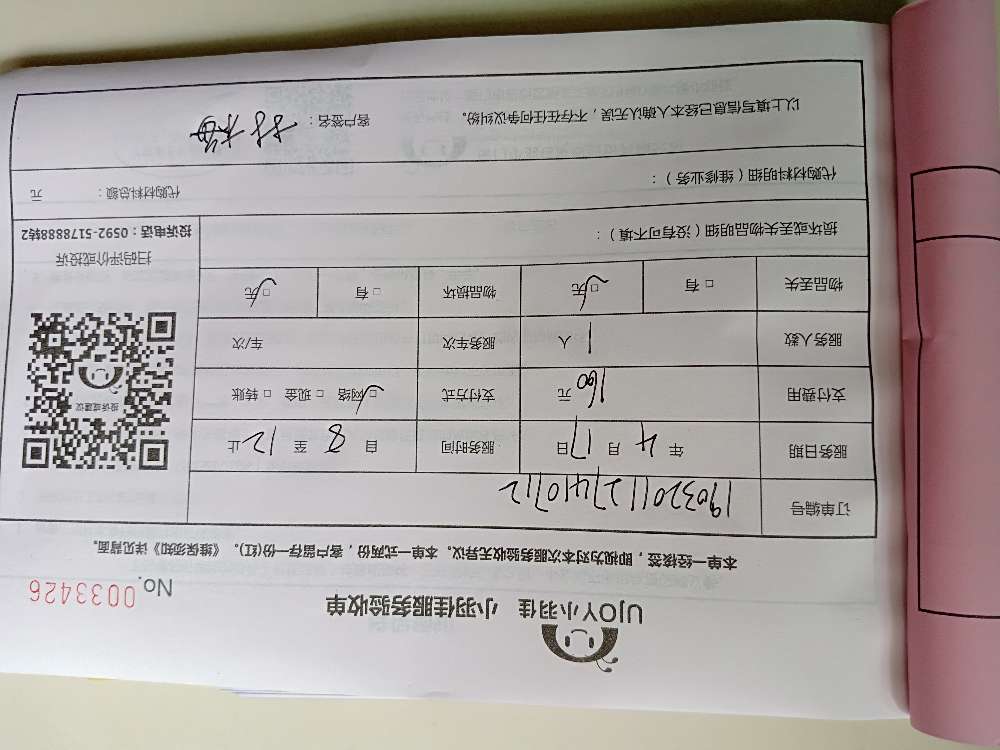 UJOY小羽佳 小羽佳服务验收单
No. 0033426
本单一经接签，即视为对本次服务验收无异议。本单一式两份，客户留存一份(红)。《维保须知》详见背面。
订单编号 190320111274410712
服务日期 年 4 月 17 日 服务时间 自 8 至 12 止
支付费用 160 元 支付方式 □网络 □现金 □转账
服务人数 1 人 服务车次 车/次
物品丢失 □有 □无 物品损坏 □有 □无
投诉或建议
扫码评价或投诉
投诉电话：0592-5178888转2
损坏或丢失物品明细（没有可不填）：
代购材料明细（维修业务）： 代购材料总额： 元
以上填写信息已经本人确认无误，不存在任何争议纠纷。 客户签名：